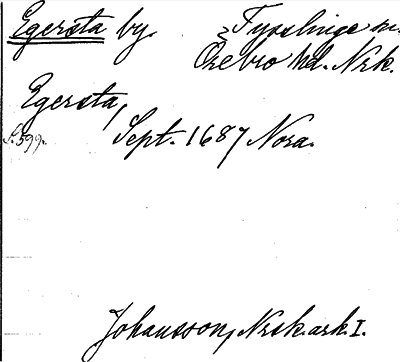 Egersta by. Tysslinge sn.
Örebro hd. Nrk.
Egersta,
S. 599. Sept. 1687 Nora.
Johansson, Nrsk. ark. I.